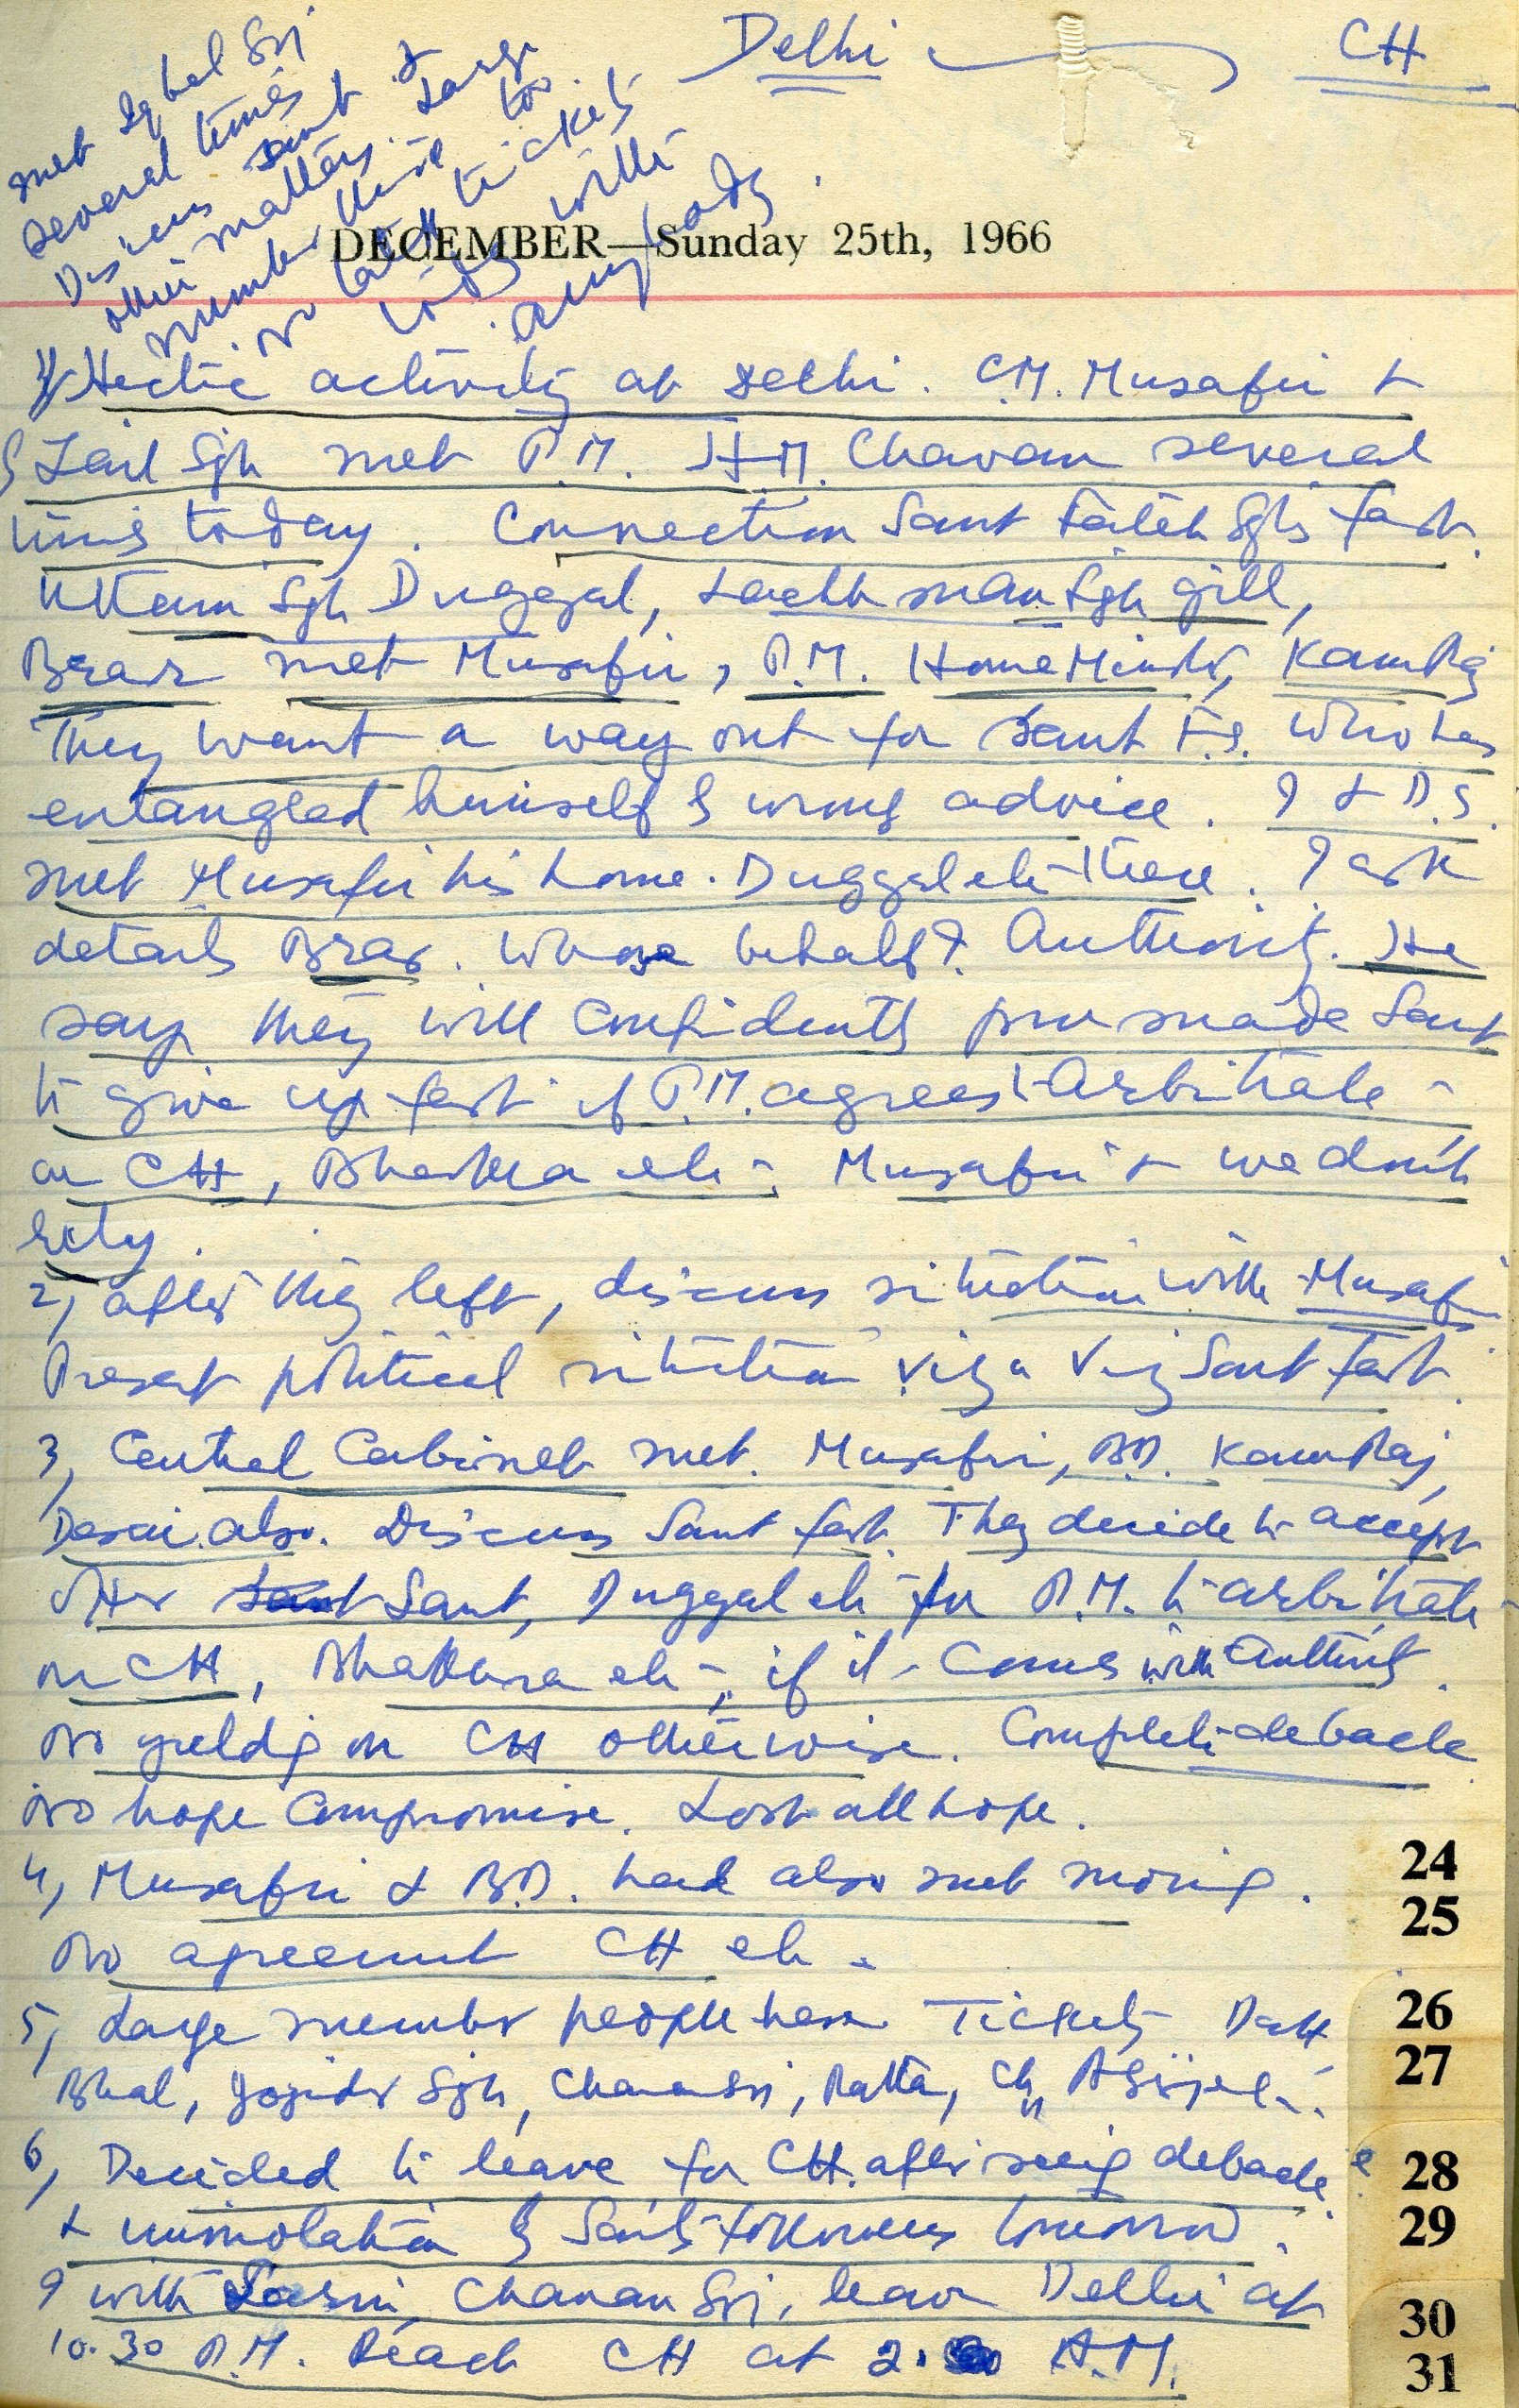 Delhi CH
met Iqbal Sri
several times
Discuss Sant &
other matters. Large
number there too
no talk tickets
with
anybody.
DECEMBER—Sunday 25th, 1966
1) Hectic activity at Delhi. C.M. Musafir &
Zail Sgh met P.M. H.M. Chavan several
times today. Connection Sant Fateh Sghs fast.
Uttam Sgh Duggal, Lachhman Sgh Gill,
Brar met Musafir, P.M. Home Mindr, KamRaj
They want a way out for Sant F.S. who has
entangled himself & wrong advice. I & D.S.
met Musafir his home. Duggal etc there. I ask
details Brar. Whose behalf? Authority. He
says they will confidently pursuade Sant
to give up fast if P.M. agrees to Arbitrate
on CH, Bhakhra etc. Musafir & we don't
rely.
2, after they left, discuss situation with Musafir
Present political situation viz a viz Sant fast.
3, Central Cabinet met. Musafir, B.D. KamRaj,
Desai also. Discuss Sant fast. They decide to accept
offer Sant, Duggal etc for P.M. to arbitrate
on CH, Bhakhra etc, if it comes with authority.
No yieldg on CH otherwise. Complete debacle
No hope compromise. Lost all hope.
4, Musafir & B.D. had also met morning.
No agreemnt CH etc.
5, Large number people here Tickets Datt
Bhal, Jogindr Sgh, Chanan Sri, Ratta, Ch
6, Decided to leave for CH. after seeig debacle
& immolation & Sants followers tomorrow.
I with Chanan Sri, leave Delhi at
10.30 P.M. Reach CH at 2. A.M.
24
25
26
27
28
29
30
31